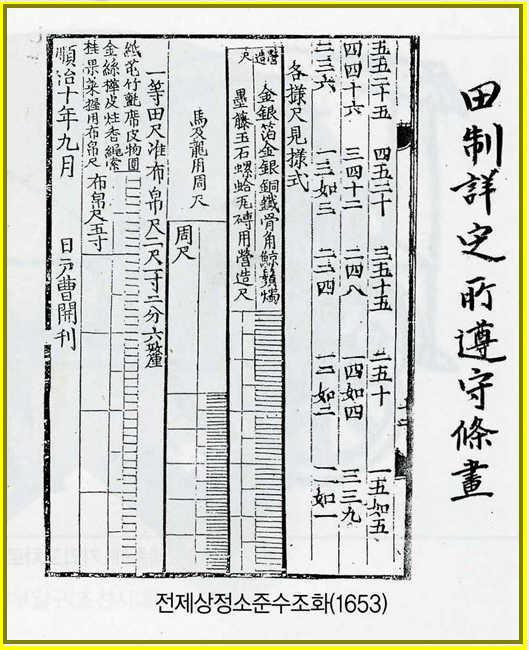 田制詳定所遵守條畫
五五二十五 四五二十 三五十五 二五十 一五如五
四四十六 三四十二 二四八 一四如四 三三九
二三六 一三如三 二二四 一二如二 一一如一
各樣尺見樣式
營造尺
金銀箔金銀銅鐵骨角鯨鬚燭
墨藤玉石螺蛤瓦磚用營造尺
馬及龍用周尺
周尺
一等田尺准布帛尺二尺一寸二分六釐
紙芚竹氈席皮物圓
金絲樺皮炷香繩索
桂果菜握用布帛尺
布帛尺五寸
順治十年九月 日戶曹開刊
전제상정소준수조화(1653)